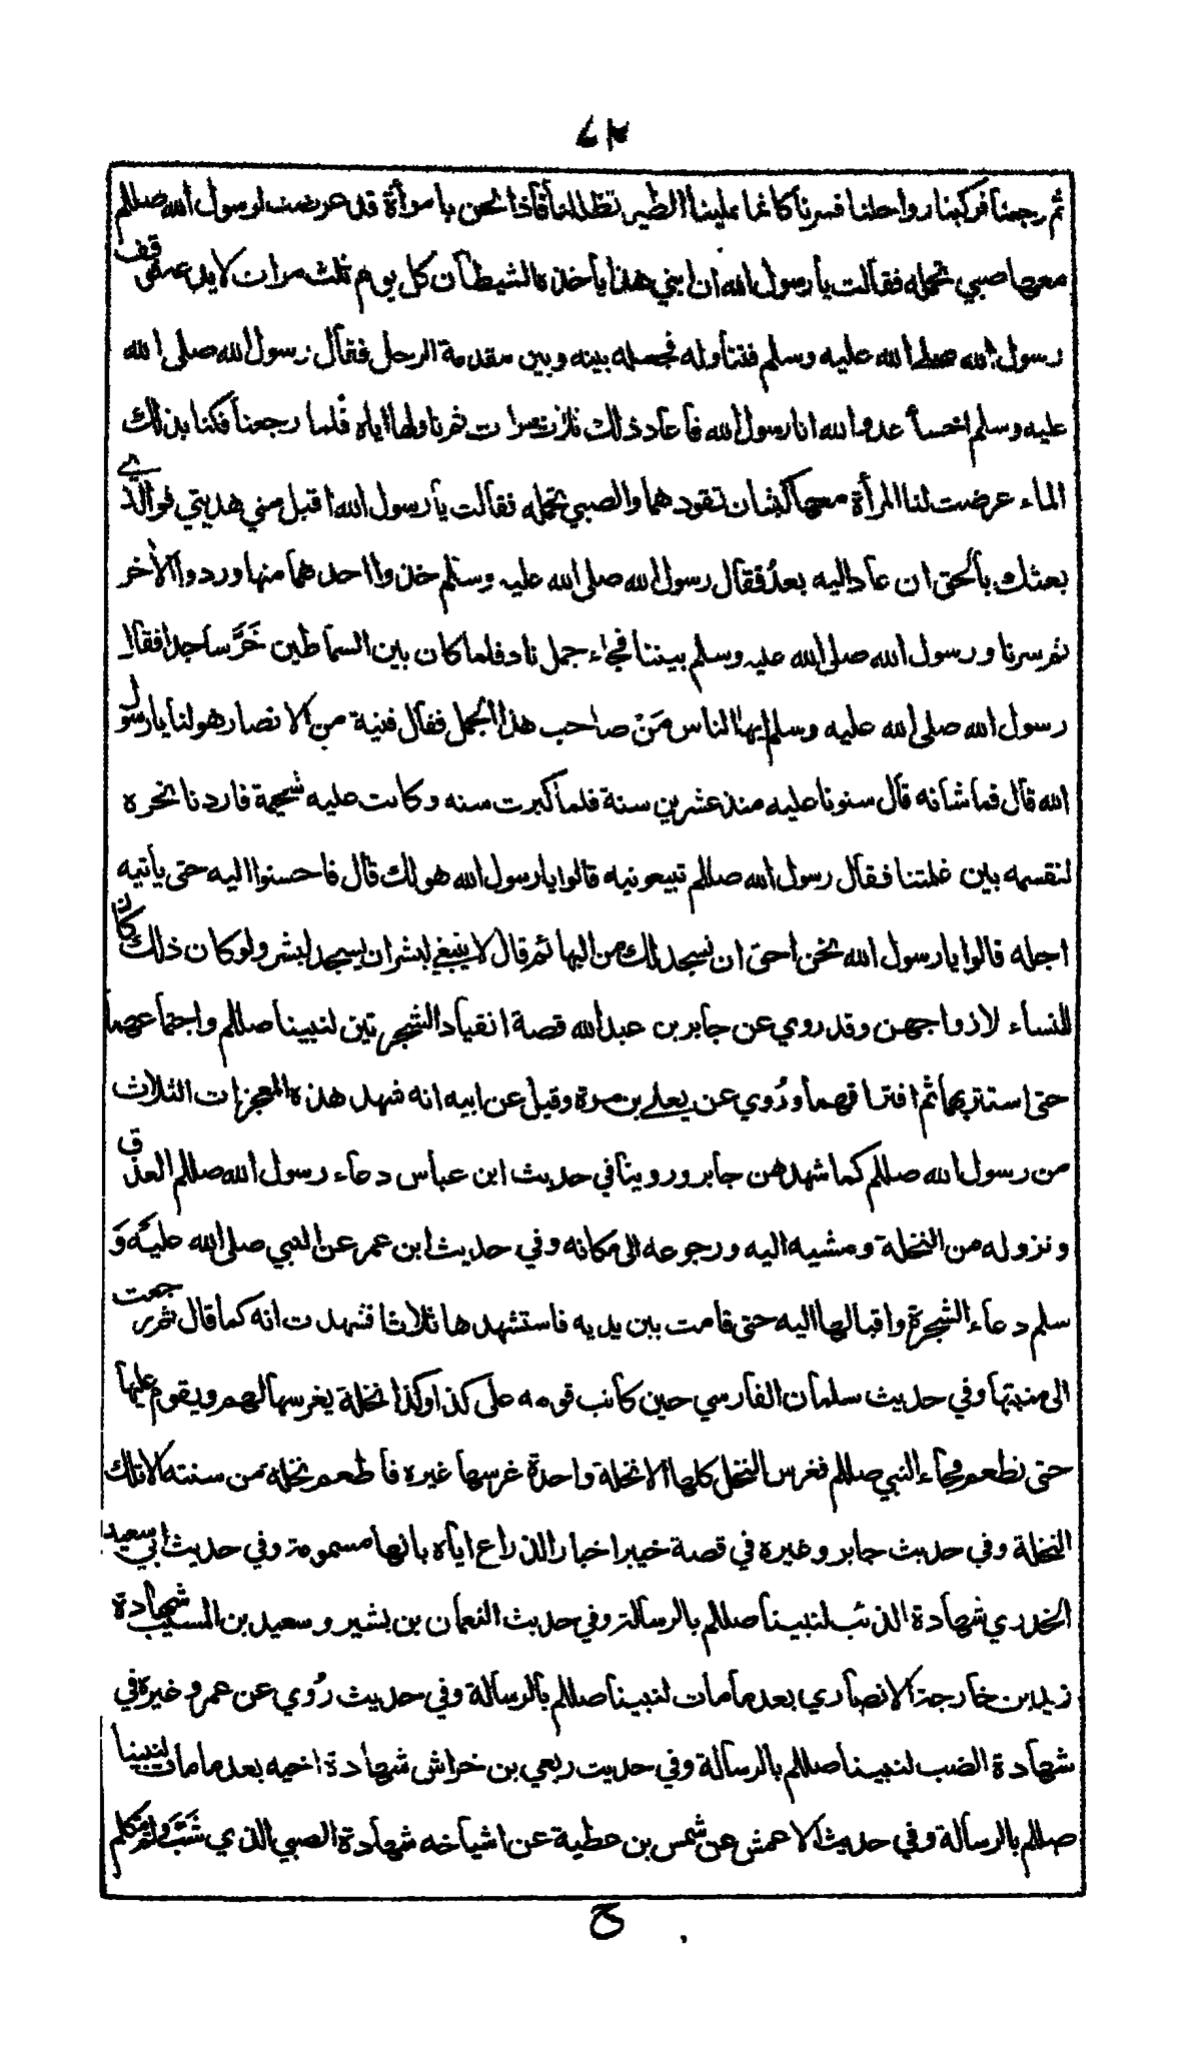 ثم رجعنا فركبنا رواحلنا فسرنا كانما علينا الطير تظلنا فاذا نحن بامرأة قد عرضت لرسول الله صللم
معها صبي تحمله فقالت يا رسول الله ان ابني هذا ياخذه الشيطان كل يوم ثلث مرات لا يدعه فوقف
رسول الله صلى الله عليه وسلم فتناوله فجعله بينه وبين مقدمة الرحل فقال رسول الله صلى الله
عليه وسلم اخسأ عدو الله انا رسول الله فاعاد ذلك ثلاث مرات ثم ناولها اياه فلما رجعنا فكنا بذلك
الماء عرضت لنا المرأة معها كبشان تقودهما والصبي تحمله فقالت يا رسول الله اقبل مني هديتي فوالذي
بعثك بالحق ان عاد اليه بعد فقال رسول الله صلى الله عليه وسلم خذوا احدهما منها وردوا الآخر
ثم سرنا ورسول الله صلى الله عليه وسلم بيننا فجاء جمل ناد فلما كان بين السماطين خَرَّ ساجدا فقال
رسول الله صلى الله عليه وسلم ايها الناس مَنْ صاحب هذا الجمل فقال فتية من الانصار هو لنا يا رسول
الله قال فما شانه قال سنونا عليه منذ عشرين سنة فلما كبرت سنه وكانت عليه شحيمة فاردنا نحره
لنقسمه بين غلمتنا فقال رسول الله صللم تبيعونيه قالوا يا رسول الله هو لك قال فاحسنوا اليه حتى ياتيه
اجله قالوا يا رسول الله نحن احق ان نسجد لك من البهائم قال لا ينبغي لبشر ان يسجد لبشر ولو كان ذلك كان
للنساء لازواجهن وقد روي عن جابر بن عبد الله قصة انقياد الشجرتين لنبينا صللم واجتماعهما
حتى استتر بهما ثم افتراقهما ورُوي عن يعلے بن مرة وقيل عن ابيه انه شهد هذه المعجزات الثلاث
من رسول الله صللم كما شهدهن جابر وروينا في حديث ابن عباس دعاء رسول الله صللم العذق
ونزوله من النخلة ومشيه اليه ورجوعه الى مكانه وفي حديث ابن عمر عن النبي صلى الله عليه وَ
سلم دعاء الشجرة واقبالها اليه حتى قامت بين يديه فاستشهدها ثلاثا فشهدت انه كما قال ثم رجعت
الى منبتها وفي حديث سلمان الفارسي حين كاتب قومه على كذا وكذا نخلة يغرسها لهم ويقوم عليها
حتى تطعم فجاء النبي صللم فغرس النخل كلها الا نخلة واحدة غرسها غيره فاطعم نخله من سنته الا تلك
النخلة وفي حديث جابر وغيره في قصة خيبر اخبار الذراع اياه بانها مسمومة وفي حديث ابي سعيد
الخدري شهادة الذئب لنبينا صللم بالرسالة وفي حديث النعمان بن بشير وسعيد بن المسيب شهادة
زيد بن خارجة الانصاري بعد ما مات لنبينا صللم بالرسالة وفي حديث رُوي عن عمر وغيره في
شهادة الضب لنبينا صللم بالرسالة وفي حديث ربعي بن خراش شهادة اخيه بعد ما مات لنبينا
صللم بالرسالة وفي حديث الاعمش عن شمس بن عطية عن اشياخه شهادة الصبي الذي شَبَّ ولم يتكلم
ح